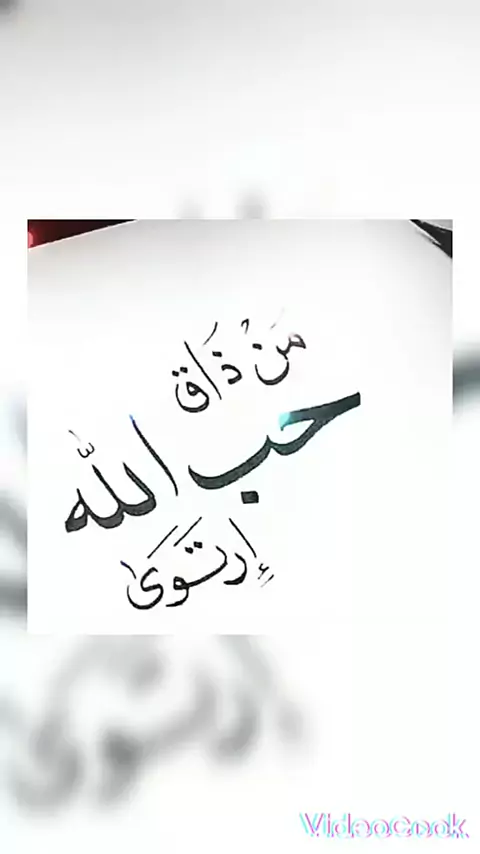 مَنْ ذَاق
حب اللّٰه
إِرتَوَىٰ
VideoCook